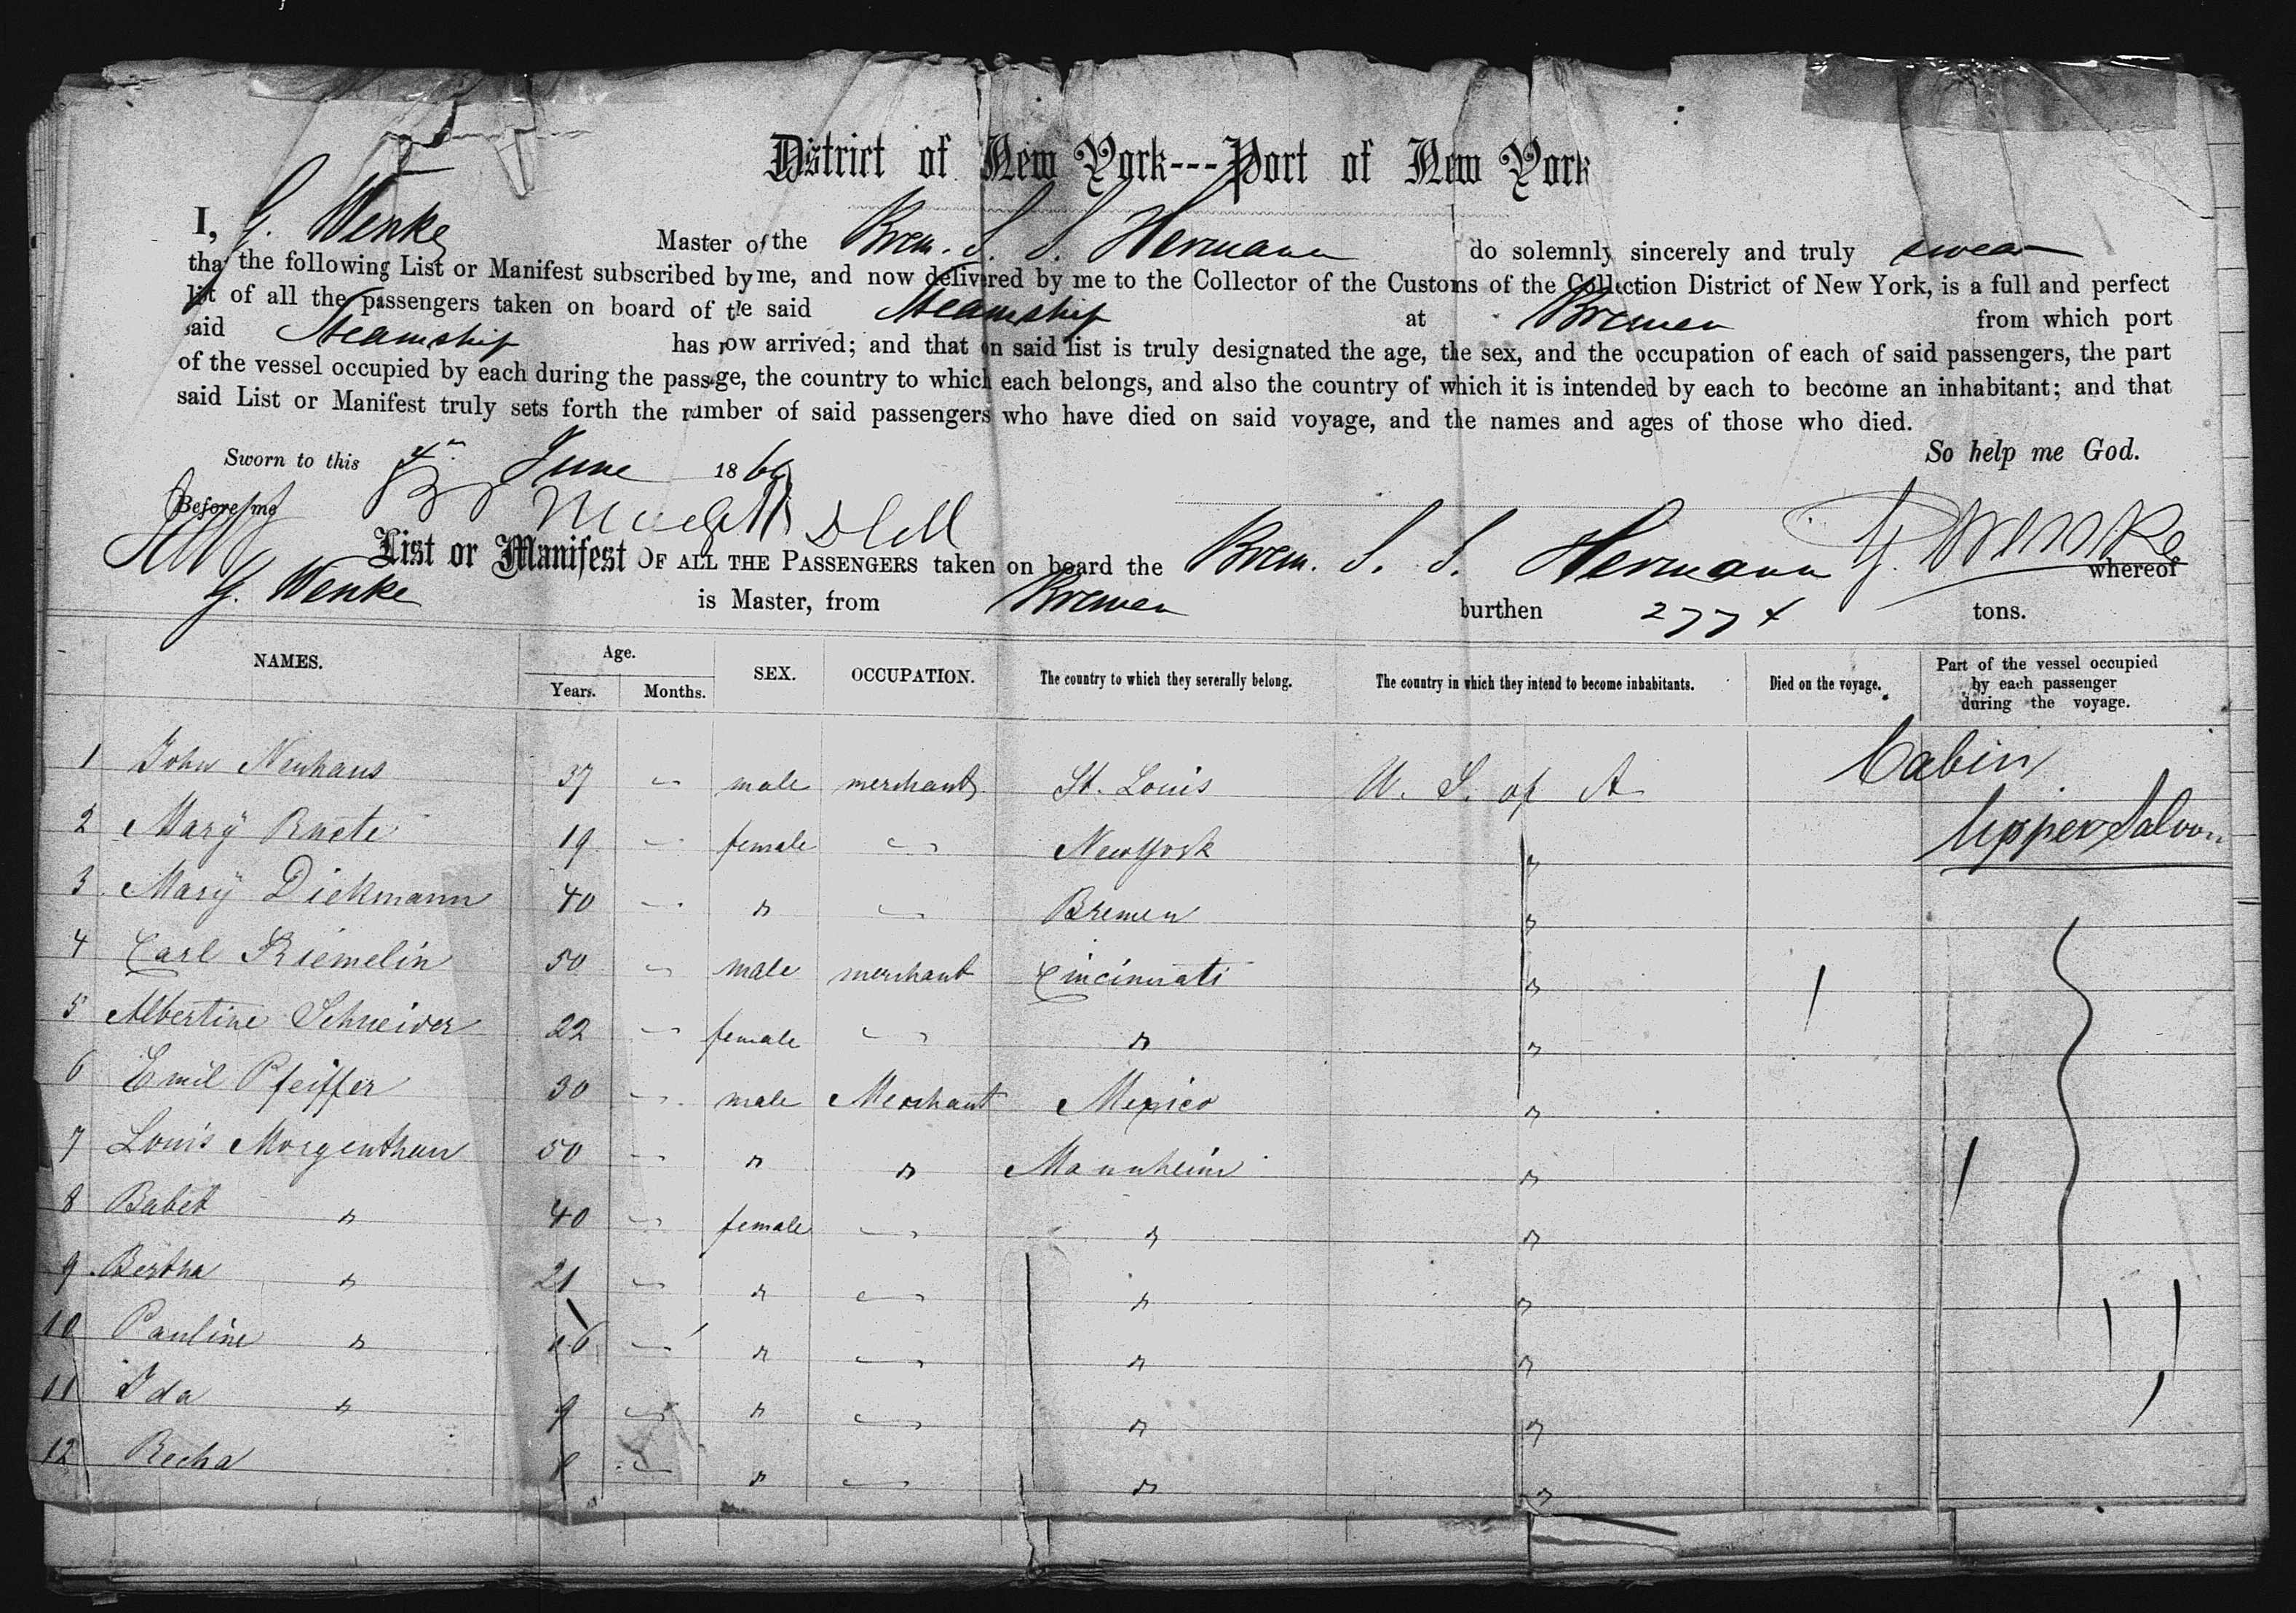 District of New York---Port of New York
I, G. Wenke Master of the Brem. S. S. Hermann do solemnly sincerely and truly swear
that the following List or Manifest subscribed by me, and now delivered by me to the Collector of the Customs of the Collection District of New York, is a full and perfect
list of all the passengers taken on board of the said Steamship at Bremen from which port
said Steamship has now arrived; and that on said list is truly designated the age, the sex, and the occupation of each of said passengers, the part
of the vessel occupied by each during the passage, the country to which each belongs, and also the country of which it is intended by each to become an inhabitant; and that
said List or Manifest truly sets forth the number of said passengers who have died on said voyage, and the names and ages of those who died.
So help me God.
Sworn to this 4th June 186
Before me
G. Wenke
List or Manifest OF ALL THE PASSENGERS taken on board the Brem. S. S. Hermann whereof
G. Wenke is Master, from Bremen burthen 2774 tons.
NAMES. Age. Years. Months. SEX. OCCUPATION. The country to which they severally belong. The country in which they intend to become inhabitants. Died on the voyage. Part of the vessel occupied by each passenger during the voyage.
1 John Neuhaus 37 " male merchant St. Louis U. S. of A Cabin
2 Mary Ruete 19 " female " New York " Upper Saloon
3 Mary Diekmann 40 " " " Bremen "
4 Carl Riemelin 50 " male merchant Cincinnati "
5 Albertine Schneider 22 " female " " "
6 Emil Pfeiffer 30 " male Merchant Mexico "
7 Louis Morgenthau 50 " " " Mannheim "
8 Babet " 40 " female " " "
9 Bertha " 21 " " " " "
10 Pauline " 16 " " " " "
11 Ida " 9 " " " " "
12 Recha " " " " "